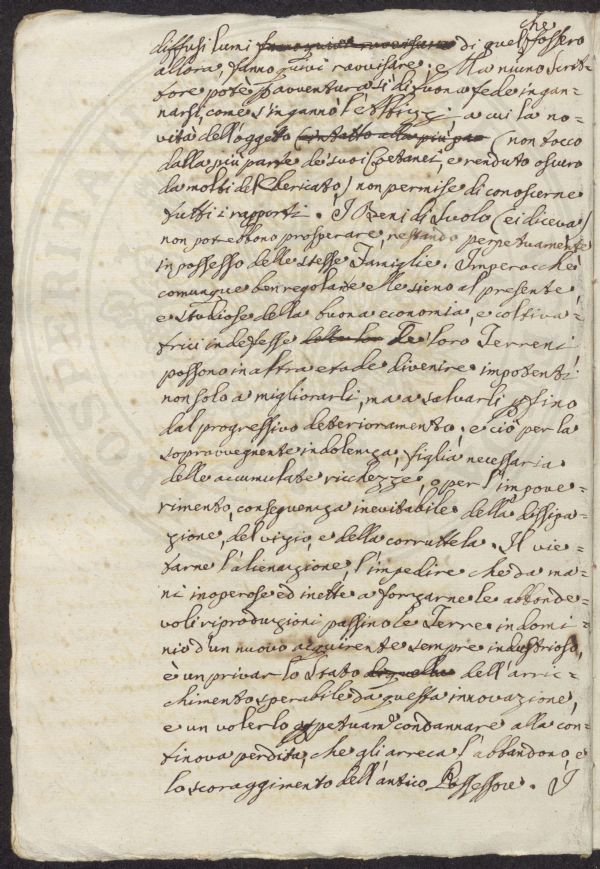 che
diffusi lumi di quel fossero
allora, fanno quivi ravvisare: e Ma niuno Scrit-
tore potè p avventura sì di buona fede ingan-
narsi, come s'ingannò l'; a cui la no-
vità dell'oggetto (non tocco
dalla più parte de' suoi Coetanei, e renduto oscuro
da molti del Chericato) non permise di conoscerne
tutti i rapporti. I Beni di Suolo (ei diceva)
non potrebbono prosperare, restando perpetuamente
in possesso delle stesse Famiglie. Imperocchè
comunque ben regolate elle sieno al presente,
e studiose della buona economia, e coltiva-
trici indefesse de' loro Terreni
possono in altra etade divenire impotenti
non solo a migliorarli, ma a salvarli p fino
dal progressivo deterioramento; e ciò per la
sopravvegnente indolenza, figlia necessaria
delle accumulate ricchezze, o per l'impove-
rimento, conseguenza inevitabile della dissipa-
zione, del vizio, e della corruttela. Il vie-
tarne l'alienazione, l'impedire che da ma-
ni inoperose ed inette a forzarne le abbonde-
voli riproduzioni passino le Terre in domi-
nio d'un nuovo acquirente sempre industrioso,
è un privar lo Stato dell'arric-
chimento sperabile da questa innovazione,
e un volerlo ppetuam.e condannare alla con-
tinova perdita, che gli arreca l'abbandono, e
lo scoraggimento dell'antico Possessore. I